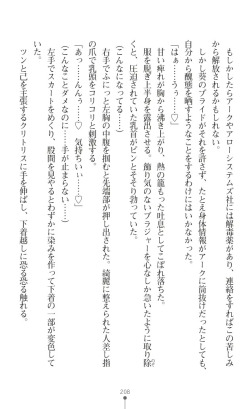 もしかしたらアークやアローシステムズ社には解毒薬があり、連絡をすればこの苦しみ
から解放されるかもしれない。
しかし葵のプライドがそれを許さず、たとえ身体情報がアークに筒抜けだったとしても、
自分から醜態を晒すようなことをするわけにはいかなかった。
「はぁ……うぅ……♡」
甘い痺れが胸から沸き上がり、熱の籠もった吐息としてこぼれ落ちた。
服を脱ぎ上半身を露出させる。飾り気のないブラジャーを心なしか急いたように取り除
くと、圧迫されていた乳首がピンとそそり勃っていた。
(こんなになってる……)
右手でふにっと左胸の中腹を掴むと先端部が押し出された。綺麗に整えられた人差し指
の爪で乳頭をコリコリと刺激する。
「あっ……んんぅ……♡　気持ちいぃ……♡」
(こんなことダメなのに……手が止まらない……)
左手でスカートをめくり、股間を見やるとわずかに染みを作って下着の一部が変色して
いた。
ツンと己を主張するクリトリスに手を伸ばし、下着越しに恐る恐る触れる。
208